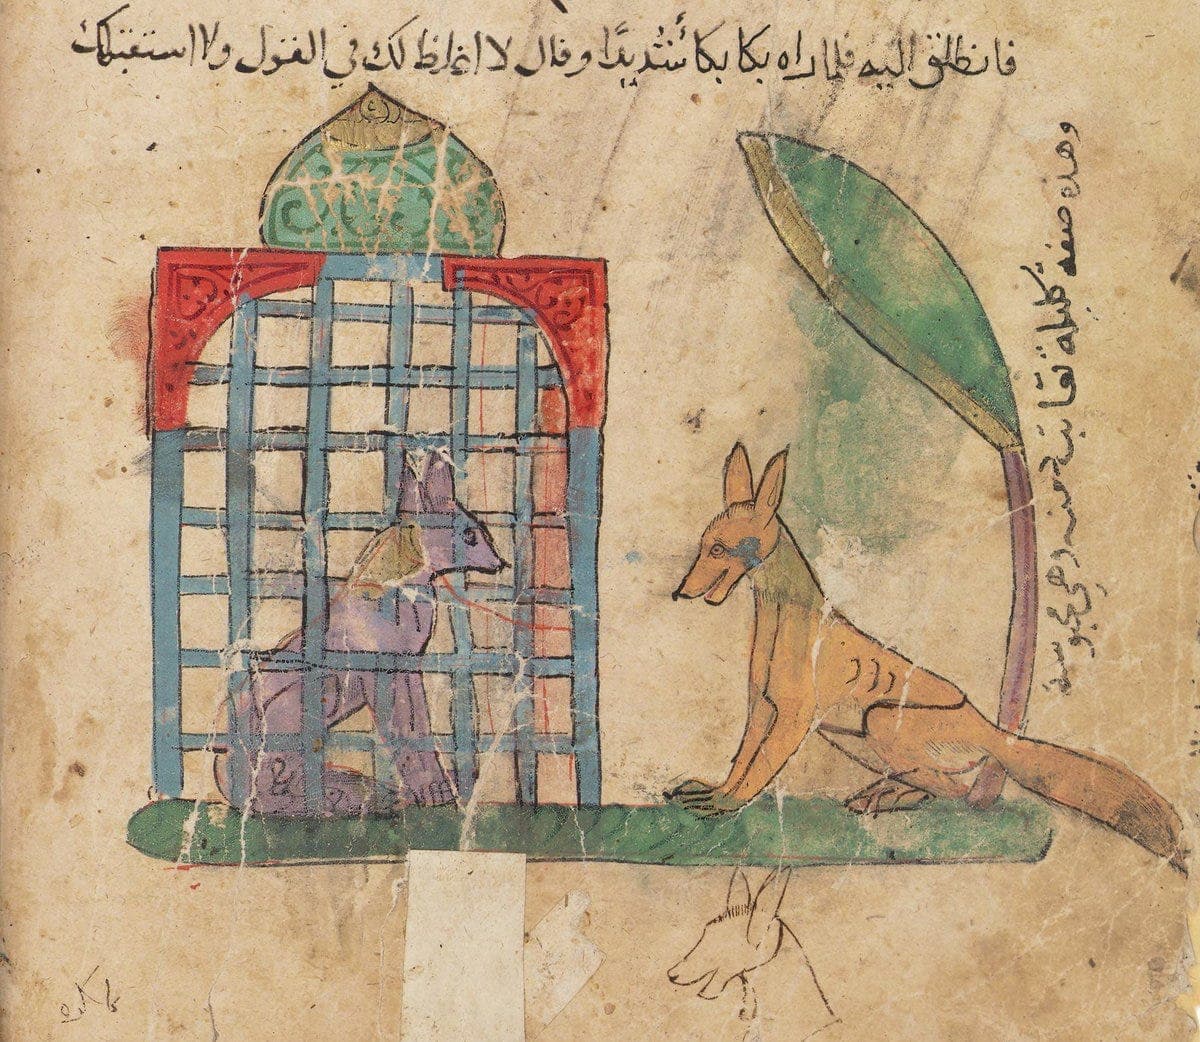 فانطلق اليه فلما راه بكا بكاً شديدًا وقال لا اغلظ لك في القول ولا استقبلك
وهذه صفة كليلة تعاتب دمنه وهي محبوسة